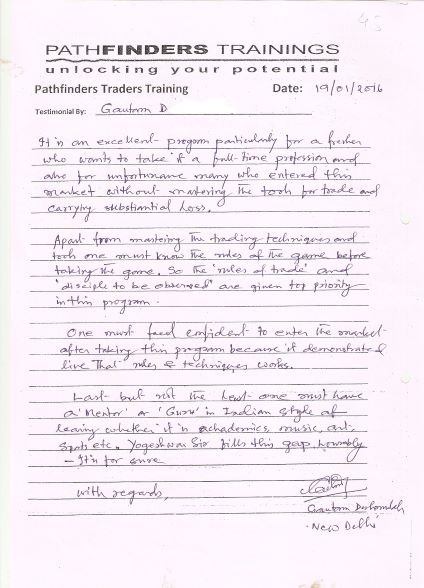 45
PATHFINDERS TRAININGS
unlocking your potential
Pathfinders Traders Training Date: 19/01/2016
Testimonial By: Gautam D
It is an excellent program particularly for a fresher
who wants to take it a full-time profession and
also for unfortunate many who entered this
market without mastering the tools for trade and
carrying substantial loss.
Apart from mastering the trading techniques and
tools one must know the rules of the game before
taking the game. So the 'rules of trade' and
'disciple to be observed' are given top priority
in this program.
One must feed confident to enter the market
after taking this program because it demonstrated
live that rules & techniques works.
Last but not the least one must have
a 'Mentor' or 'Guru' in Indian style of
learing whether it in achademics, music, art,
sports etc. Yogeshwar Sir fills this gap
— It is for sure
with regards,
Gautam
New Delhi